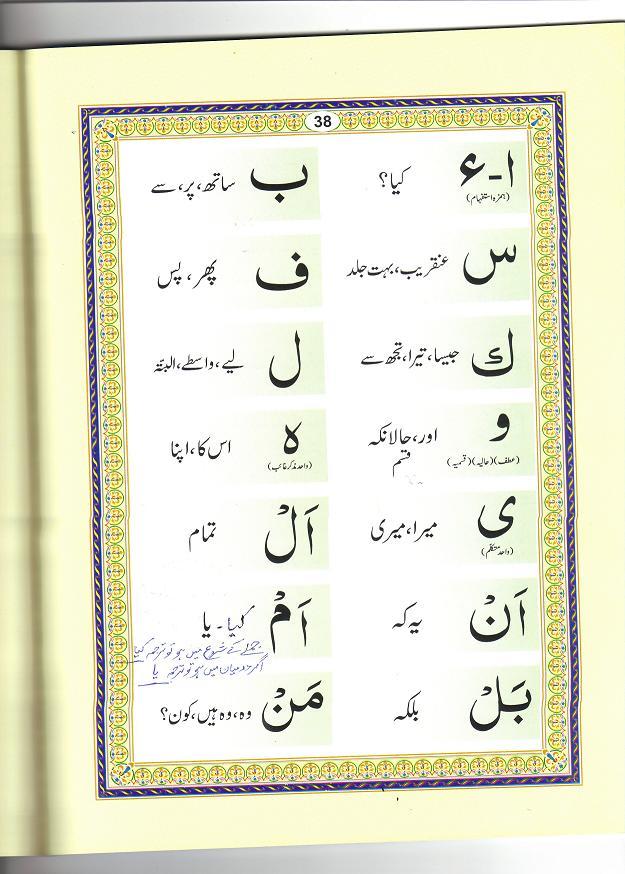 38
ا۔ء کیا؟ ب ساتھ، پر، سے
(ہمزہ استفہام)
س عنقریب، بہت جلد ف پھر، پس
ك جیسا، تیرا، تجھ سے ل لیے، واسطے، البتّہ
و اور، حالانکہ ہ اس کا، اپنا
(عطف) (حالیہ) (قسمیہ) قسم (واحد مذکر غائب)
ی میرا، میری اَلْ تمام
(واحد متکلم)
اَنْ یہ کہ اَمْ کیا۔ یا
جملے کے شروع میں ہو تو ترجمہ کیا
اگر درمیان میں ہو تو ترجمہ یا
بَلْ بلکہ مَنْ وہ، وہ ہیں، کون؟